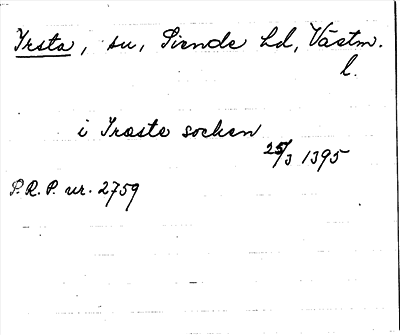 Irsta, sn, Siende hd, Västm.
l.
i Iræste socken
25/3 1395
P.R.P. nr. 2759